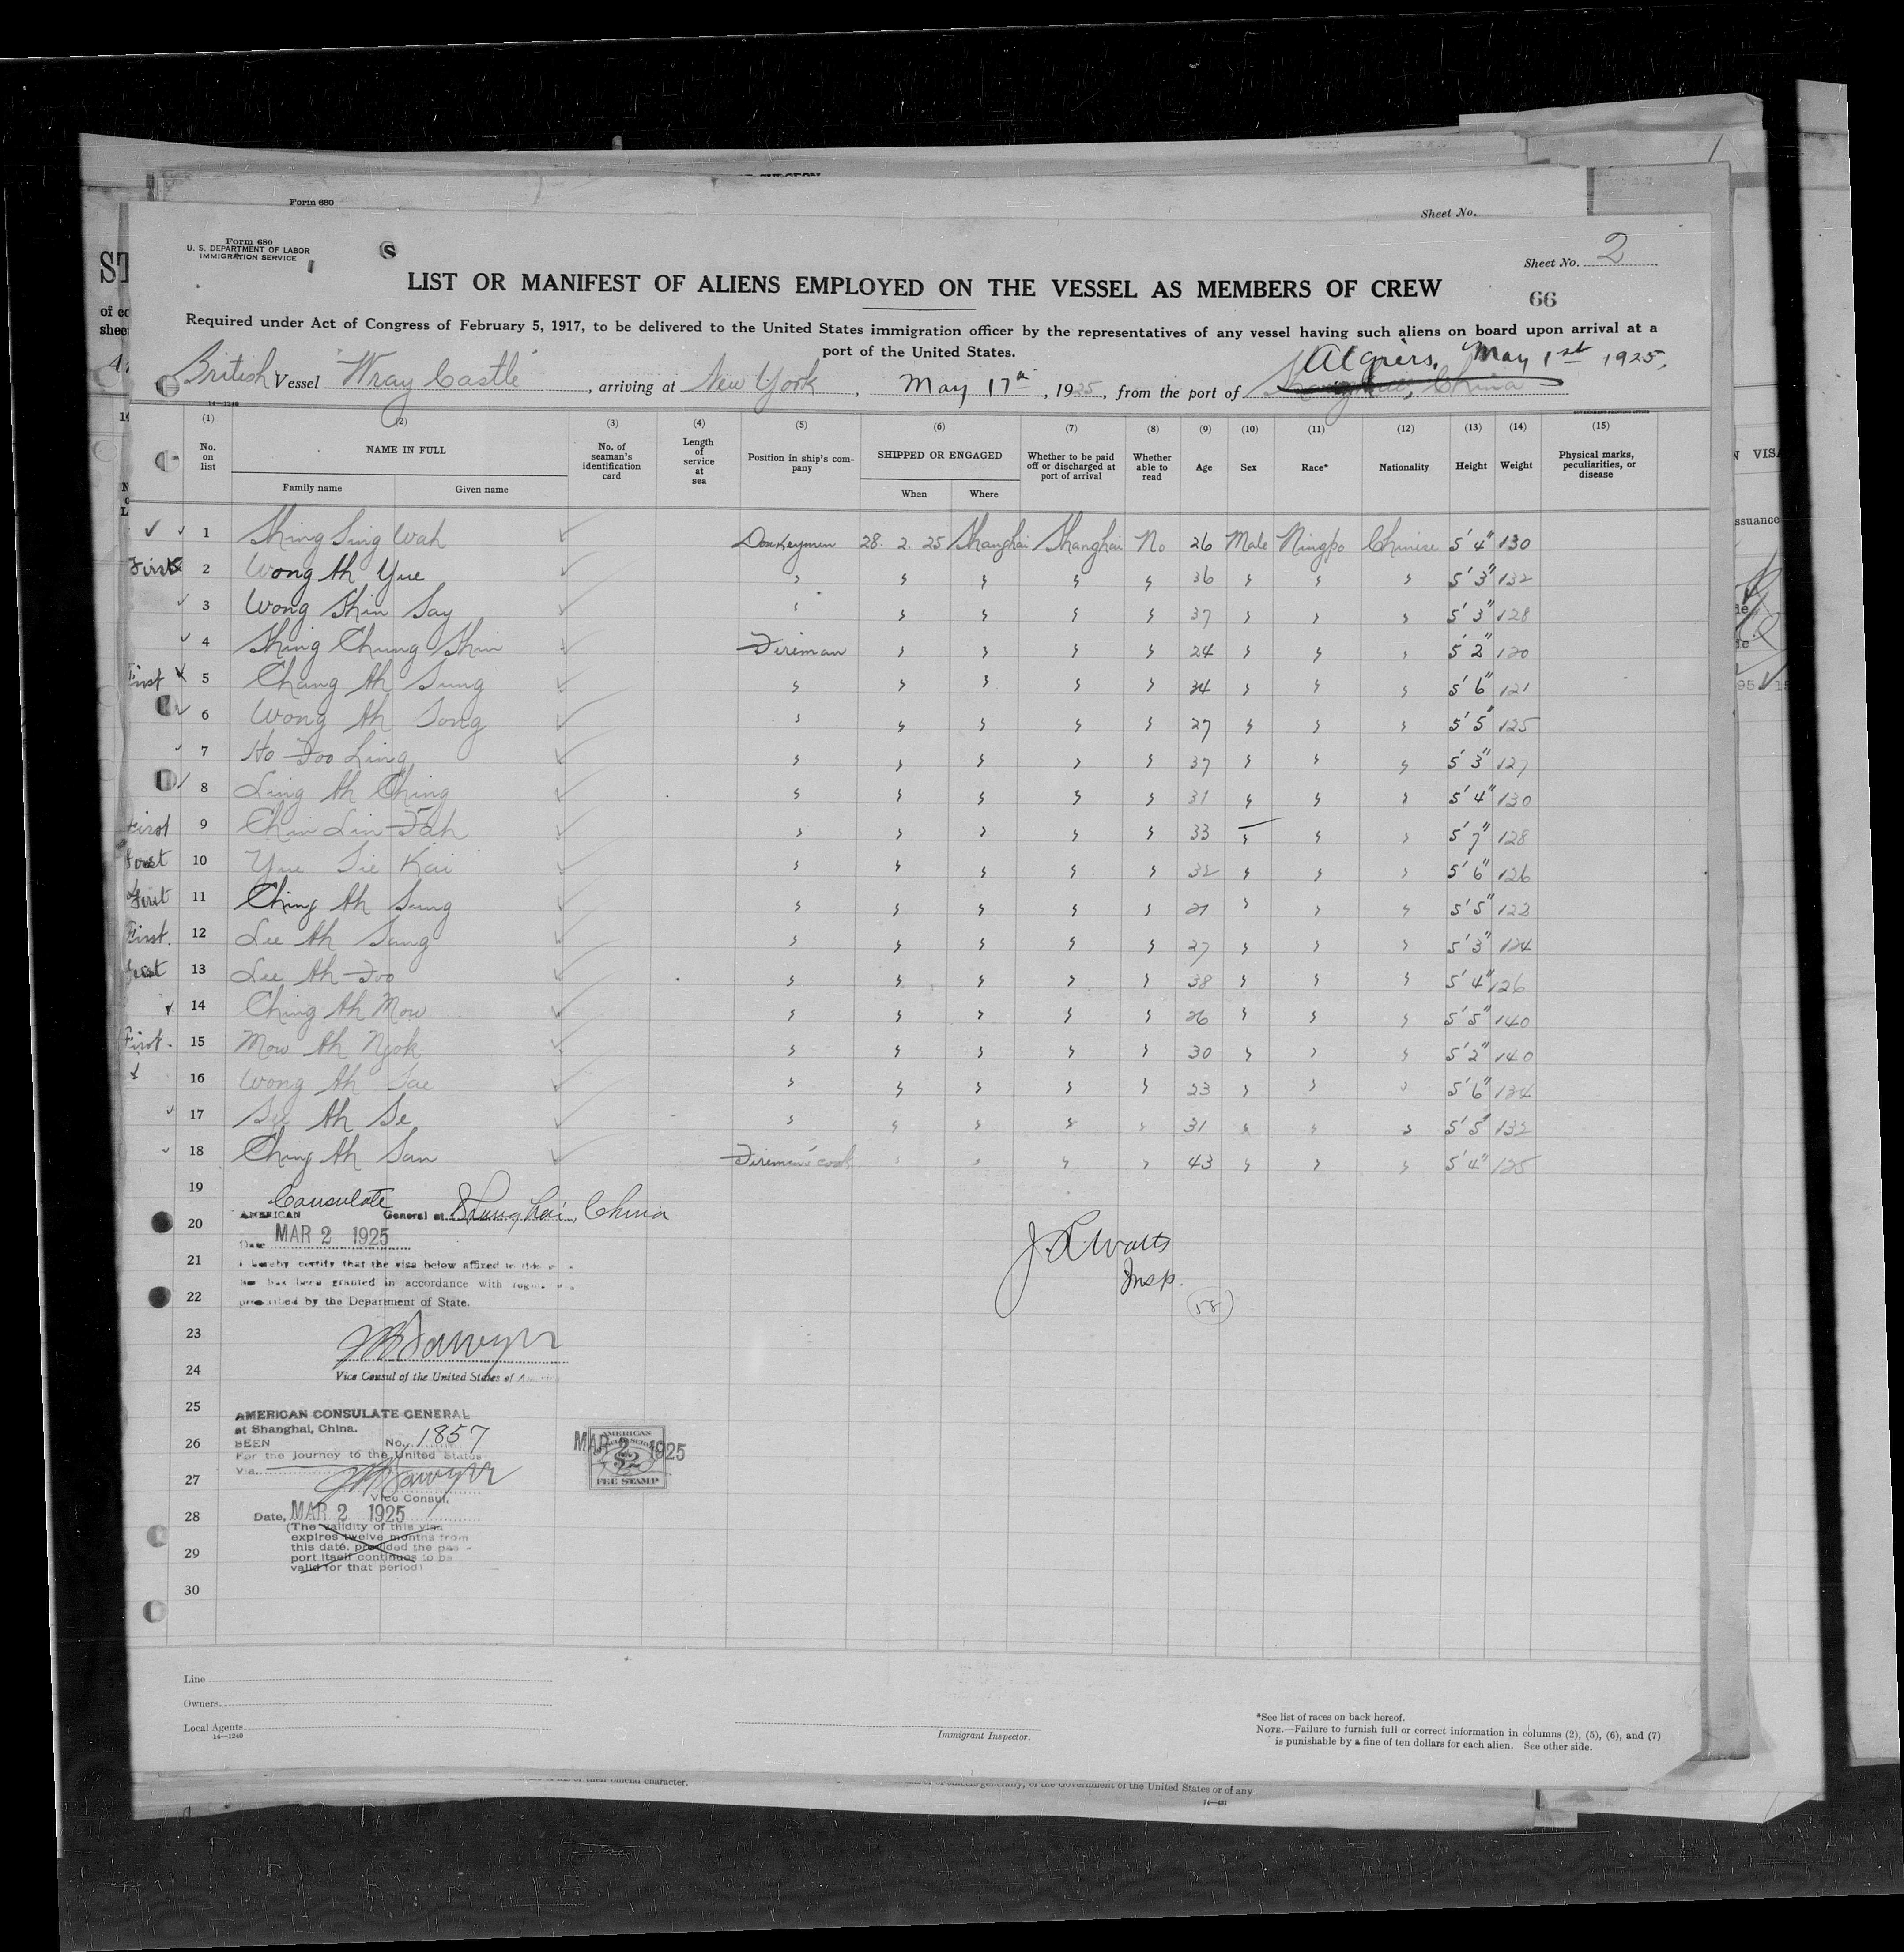 Form 680
Sheet No.
Form 680
U. S. DEPARTMENT OF LABOR
IMMIGRATION SERVICE
S
Sheet No. 2
LIST OR MANIFEST OF ALIENS EMPLOYED ON THE VESSEL AS MEMBERS OF CREW
66
Required under Act of Congress of February 5, 1917, to be delivered to the United States immigration officer by the representatives of any vessel having such aliens on board upon arrival at a
port of the United States.
Algiers, May 1st 1925,
British Vessel "Wray Castle", arriving at New York, May 17th, 1925, from the port of Shanghai, China
14—1240
(1) (2) (3) (4) (5) (6) (7) (8) (9) (10) (11) (12) (13) (14) (15)
No. on list NAME IN FULL Family name Given name No. of seaman's identification card Length of service at sea Position in ship's company SHIPPED OR ENGAGED When Where Whether to be paid off or discharged at port of arrival Whether able to read Age Sex Race* Nationality Height Weight Physical marks, peculiarities, or disease
1 Shing Sing Wah Donkeymen 28. 2. 25 Shanghai Shanghai No 26 Male Ningpo Chinese 5'4" 130
First 2 Wong Ah Yue 36 5'3" 132
3 Wong Shin Say 37 5'3" 128
4 Shing Chung Shin Fireman 24 5'2" 120
First 5 Chang Ah Sung 34 5'6" 121
6 Wong Ah Song 27 5'5" 125
7 Ho Foo Ling 37 5'3" 127
8 Ling Ah Ching 31 5'4" 130
First 9 Chin Lin Fah 33 5'7" 128
First 10 Yue Sie Kai 32 5'6" 126
First 11 Ching Ah Sung 21 5'5" 122
First. 12 Lee Ah Sang 27 5'3" 124
First 13 Lee Ah Foo 38 5'4" 126
14 Ching Ah Mow 26 5'5" 140
First. 15 Mow Ah Ngok 30 5'2" 140
16 Wong Ah Sae 23 5'6" 134
17 See Ah Se 31 5'5" 132
18 Ching Ah San Firemans' cook 43 5'4" 125
19
20
21
22
23
24
25
26
27
28
29
30
Consulate
AMERICAN General at Shanghai, China
Date MAR 2 1925
I hereby certify that the visa below affixed to this
has been granted in accordance with
prescribed by the Department of State.
Vice Consul of the United States of America
J. R. Watts
Insp.
58
AMERICAN CONSULATE GENERAL
at Shanghai, China.
SEEN No. 1857
For the journey to the United States
Via
Vice Consul.
Date, MAR 2 1925
(The validity of this visa
expires twelve months from
this date, provided the pas-
port itself continues to be
valid for that period)
MAR 2 1925
AMERICAN
$2
FEE STAMP
Line
Owners
Local Agents
14—1240
Immigrant Inspector.
*See list of races on back hereof.
NOTE.—Failure to furnish full or correct information in columns (2), (5), (6), and (7)
is punishable by a fine of ten dollars for each alien. See other side.
of their official character.
generally, of the Government of the United States or of any